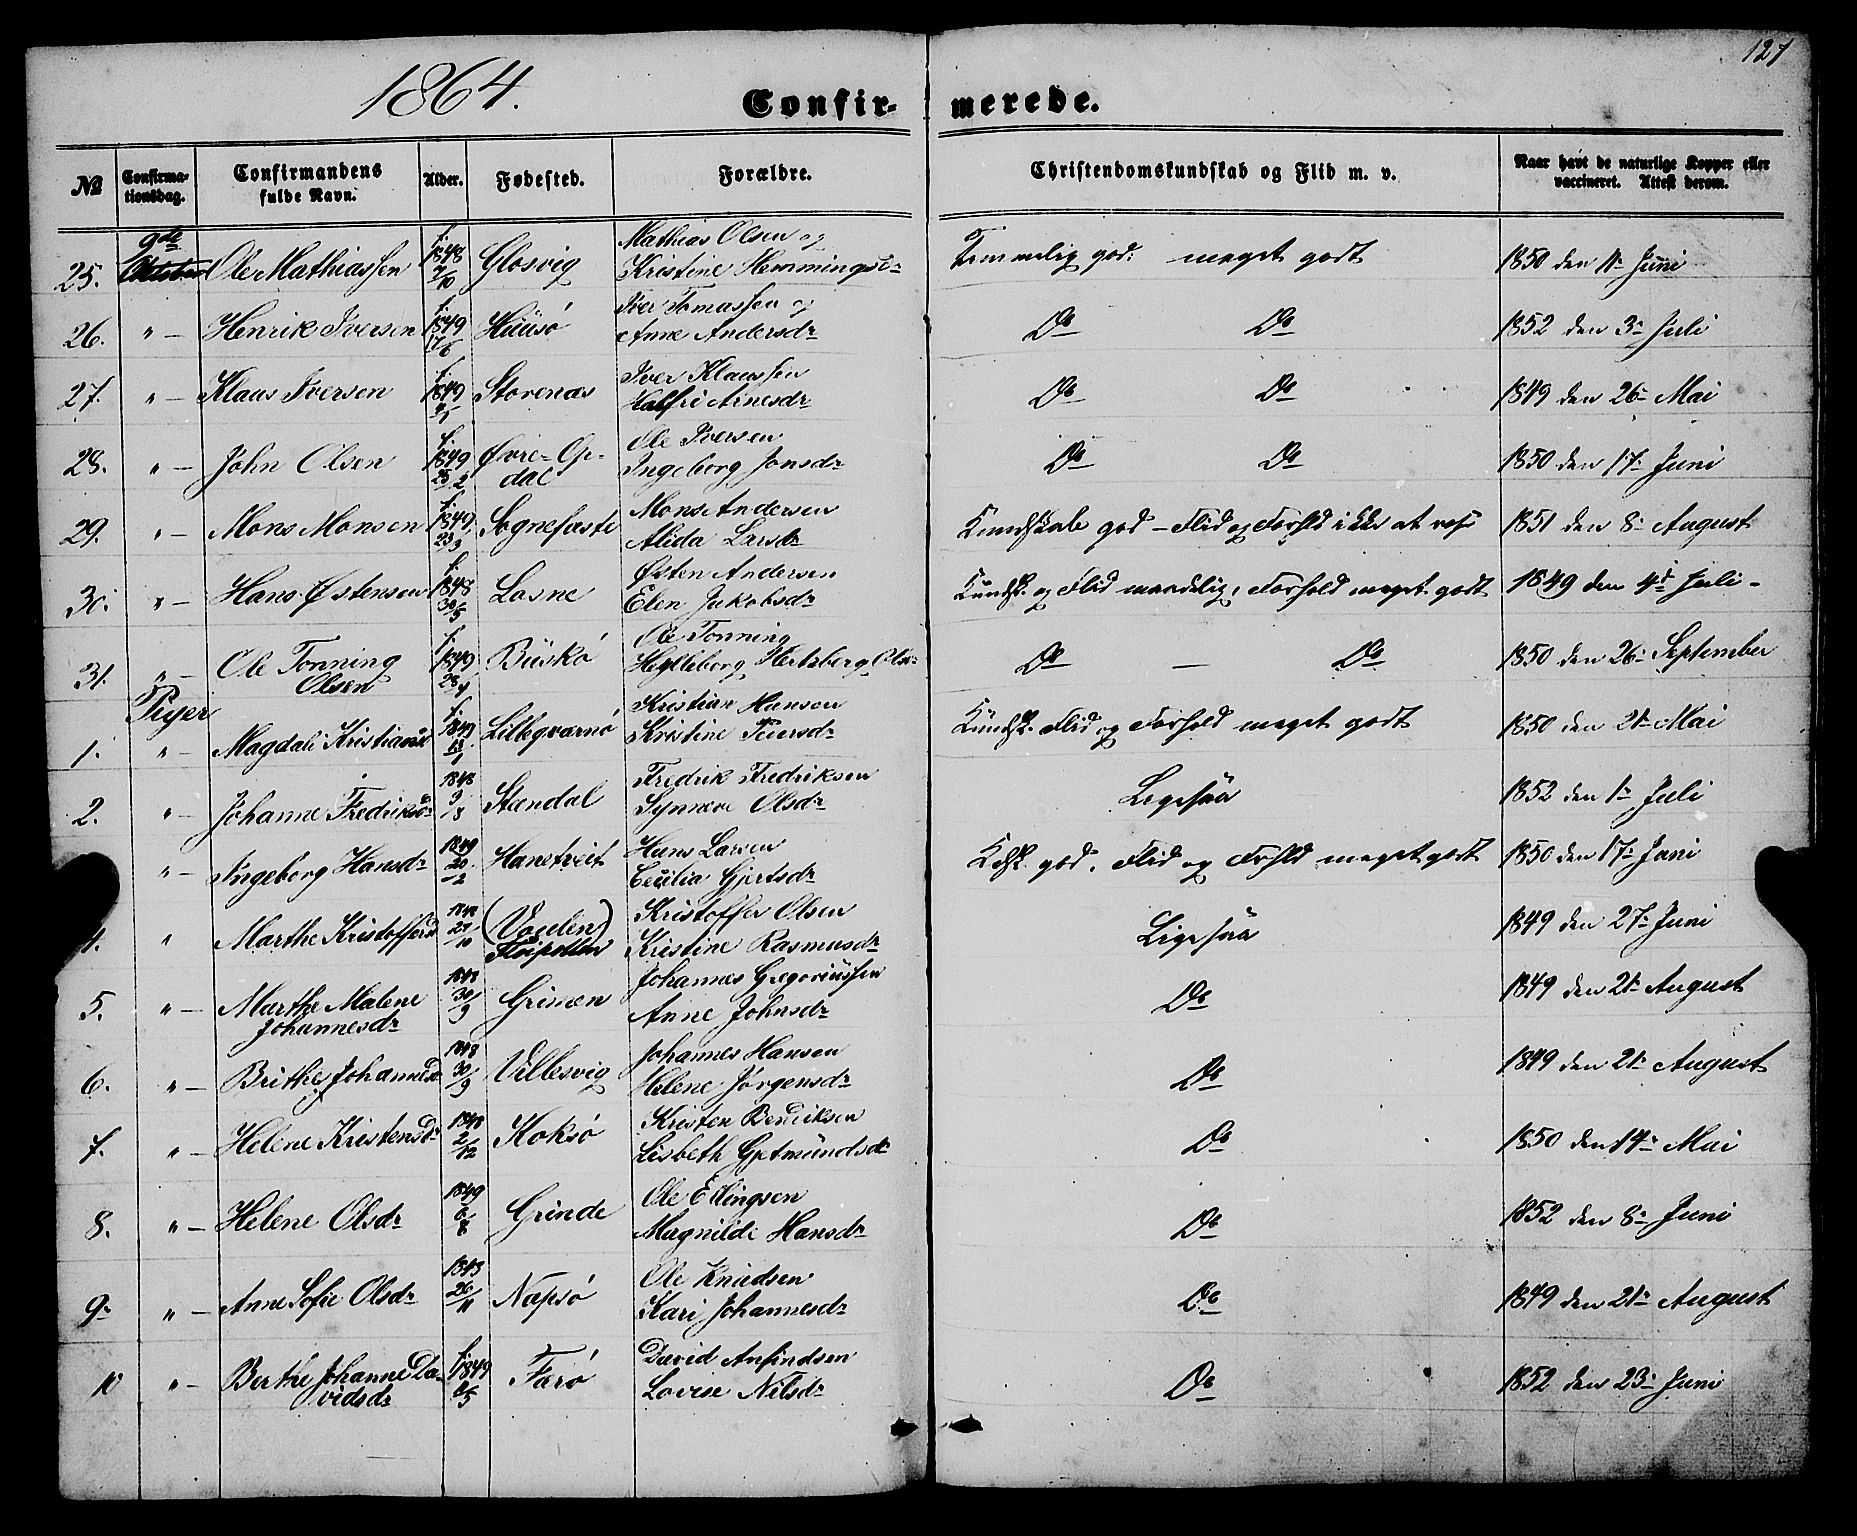 127
1864.
Confir- merede.
№ Confirma-tionsdag. Confirmandens fulde Navn. Alder. Fødested. Forældre. Christendomskundskab og Flid m. v. Naar havt de naturlige Kopper eller vaccineret. Attest derom.
25. 9de Oktober Ole Mathiassen f. 1848 Glosvig Mathias Olsen og Kristine Hemmingsdr Temmelig god: meget godt 1850 den 11te Juni
26. " — Henrik Iversen f. 1849 17/6 Hüüsø Iver Tomassen og Anne Andersdr Do Do 1852 den 3- Juli
27. " — Klaus Iversen f. 1849 Storenæs Iver Klaussen Arnesdr Do Do 1849 den 26- Mai
28. " — John Olsen f. 1849 Øvre-Opdal Ole Iversen Ingeborg Jonsdr Do Do 1850 den 17- Juni
29. " — Mons Monsen f. 1849 23/3 Sognefæste Mons Andersen Alida Larsdr Kundskab god - Flid og Forhld ikke at rose 1851 den 8- August
30. " — Hans Østensen f. 1848 30/5 Losne Østen Andersen Elen Jakobsdr Kündsk. og Flid maadelig, Forhold meget godt 1849 den 4de Juli -
31. " — Ole Tonning Olsen f. 1849 Büskø Ole Tonning Hylleborg Hertzberg Do — Do 1850 den 26- September
Piger
1. " — Magdali f. 1849 Lillegværnø Kristian Hansen Kristine Peersdr Kündsk. Flid og Forhold meget godt 1850 den 21- Mai
2. " — Johanne Fredriksdr 1848 Stændal Fredrik Fredriksen Synnøve Olsdr Ligesaa 1852 den 1- Juli
" — Ingeborg Hansdr 1849 20/2 Hantveit Hans Larsen Cecilia Gjertsdr Kdsk. god. Flid og Forhld meget godt 1850 den 17- Juni
4. " Marthe Kristoffersd 1848 (Vadlen) Kristoffer Olsen Kristine Rasmusdr Ligesaa 1849 den 27- Juni
5. " — Marthe Malene Johannesdr 1848 30/9 Grinæn Johannes Gregoriüssen Anne Johnsdr Do 1849 den 21- August
6. " — Brithe Johannesdr 1848 30/9 Villesvig Johannes Hansen Helene Jørgensdr Do 1849 den 21- August
7. " — Helene Kristensdr 1848 2/12 Koksø Kristen Bendiksen Lisbeth Gjetmündsdr Do 1850 den 14- Mai
8. " — Helene Olsdr 1849 6/8 Grinde Ole Ellingsen Magnilde Hansdr Do 1852 den 8- Juni
9- " — Anne Sofie Olsdr 26/11 Napsø Ole Knüdsen Kari Johannesdr Do 1849 den 21- August
10 " — Berthe Johanne Davidsdr f. 1849 Farø David Anfindsen Lovise Nilsdr Do 1852 den 23- Juni